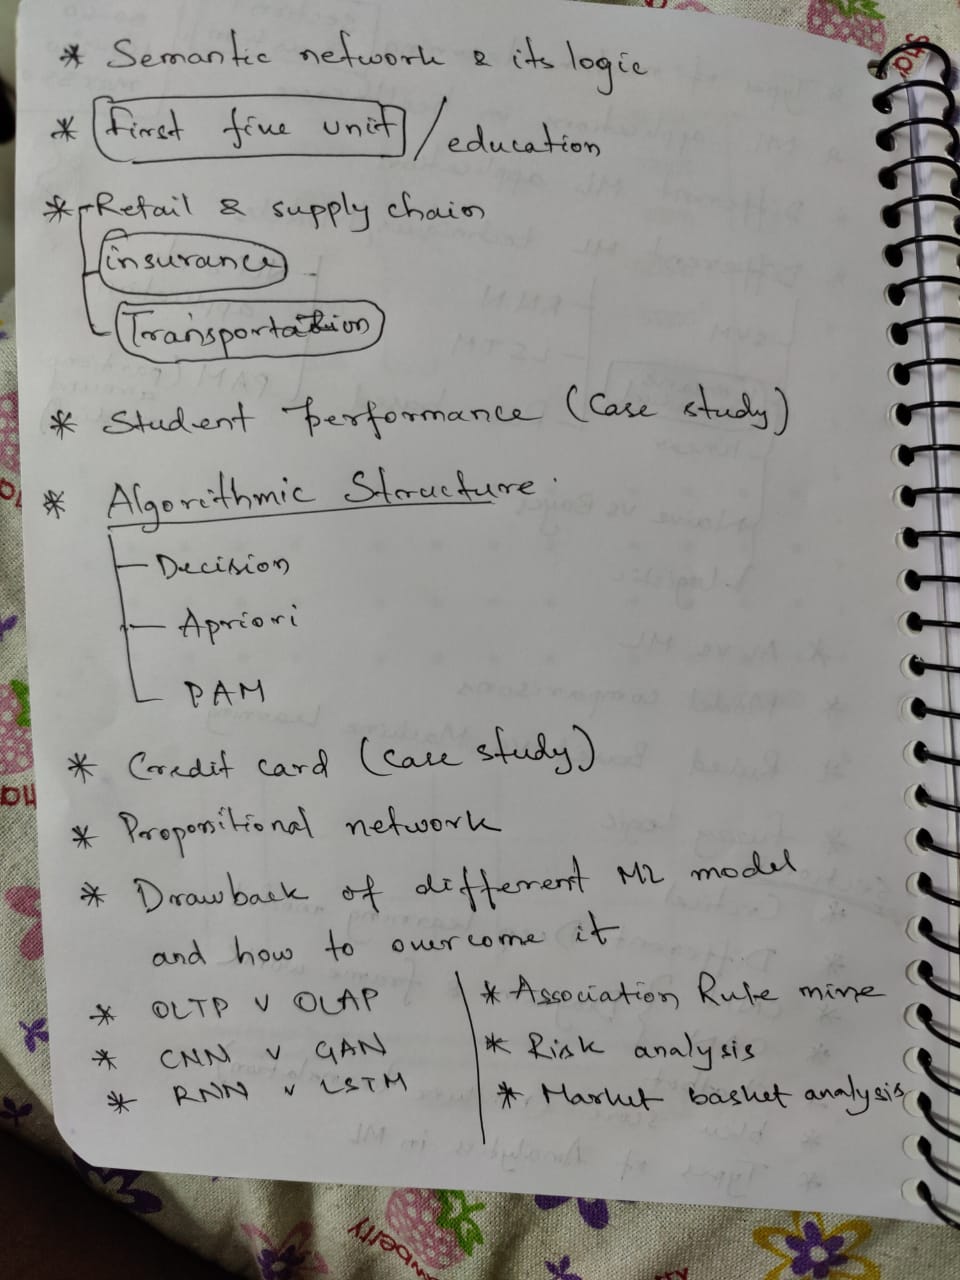 * Semantic network & its logic
* First five unit / education
* Retail & supply chain
insurance
Transportation
* Student performance (Case study)
* Algorithmic Structure.
Decision
Apriori
PAM
* Credit card (Case study)
* Propositional network
* Drawback of different ML model
and how to overcome it
* OLTP v OLAP
* CNN v GAN
* RNN v LSTM
* Association Rule mine
* Risk analysis
* Market basket analysis